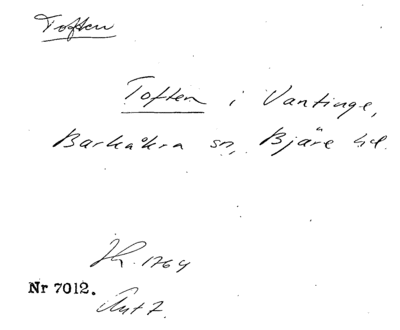 Toften
Toften i Vantinge,
Barkåkra sn, Bjäre hd.
1764
Nr 7012.